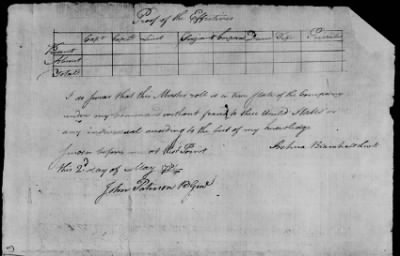 Proof of the Effectives
Capt Lieut Serjant Corporal Drum Fife Privates
Present
Absent
Total
I do swear that this Muster roll is a true State of the Company
under my command without fraud to these United States or
any individual according to the best of my knowledge
Sworn before me at West Point
this 2d day of May
John Paterson B Genl
Joshua Lieut